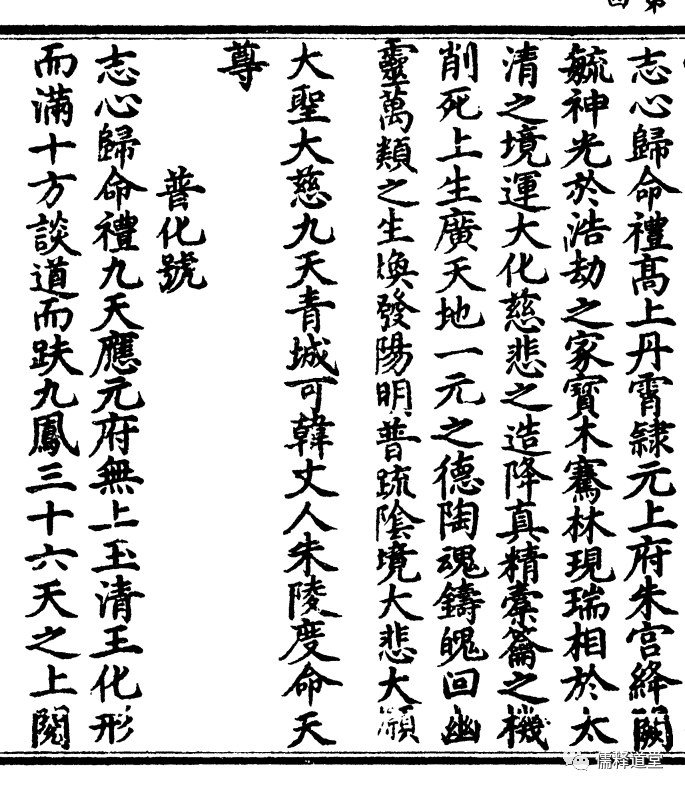 第四
志心歸命禮髙上丹霄隷元上府朱宫絳闕
毓神光於浩劫之家寳木騫林現瑞相於太
清之境運大化慈悲之造降真精槖籥之機
削死上生廣天地一元之德陶魂鑄魄回幽
靈萬類之生煥發陽明普䟽陰境大悲大願
大聖大慈九天青城可韓丈人朱陵度命天
尊
普化號
志心歸命禮九天應元府無上玉清王化形
而滿十方談道而趺九鳳三十六天之上閱
儒释道堂